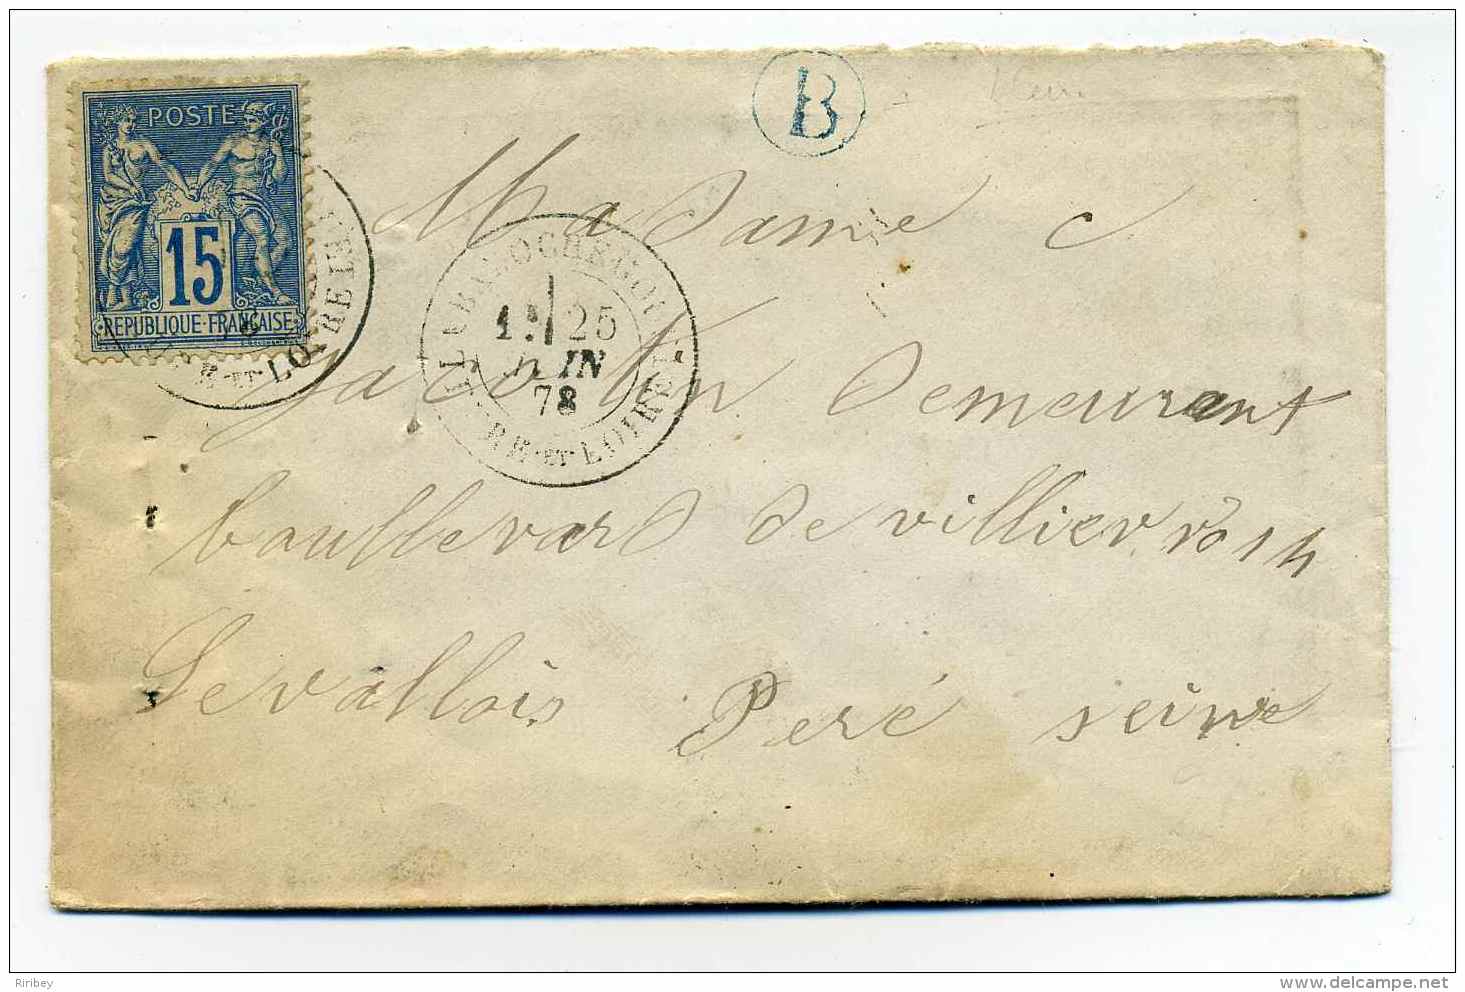 POSTE
15
REPUBLIQUE FRANÇAISE
ET LOIRE
B
25
JUIN
78
ET LOIRE
Madame C
demeurent
boullevard de villier
Levallois Peré seine
Riribey
delcampe.net